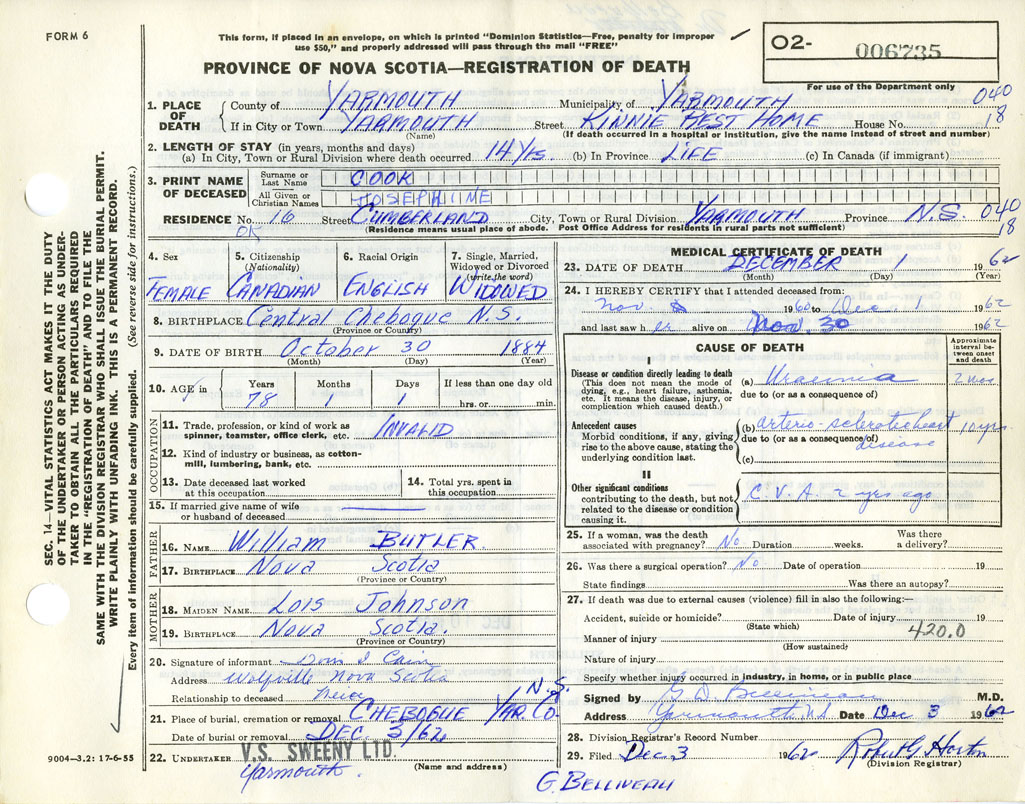 FORM 6
This form, if placed in an envelope, on which is printed "Dominion Statistics—Free, penalty for improper
use $50," and properly addressed will pass through the mail "FREE"
PROVINCE OF NOVA SCOTIA—REGISTRATION OF DEATH
O2- 006735
For use of the Department only
SEC. 14—VITAL STATISTICS ACT MAKES IT THE DUTY
OF THE UNDERTAKER OR PERSON ACTING AS UNDER-
TAKER TO OBTAIN ALL THE PARTICULARS REQUIRED
IN THE "REGISTRATION OF DEATH" AND TO FILE THE
SAME WITH THE DIVISION REGISTRAR WHO SHALL ISSUE THE BURIAL PERMIT.
WRITE PLAINLY WITH UNFADING INK. THIS IS A PERMANENT RECORD.
Every item of information should be carefully supplied. (See reverse side for instructions.)
1. PLACE OF DEATH
County of YARMOUTH Municipality of YARMOUTH 040
If in City or Town YARMOUTH Street KINNIE REST HOME House No. 18
(Name) (If death occurred in a hospital or institution, give the name instead of street and number)
2. LENGTH OF STAY (in years, months and days)
(a) In City, Town or Rural Division where death occurred 14 Yrs. (b) In Province LIFE (c) In Canada (if immigrant)
3. PRINT NAME OF DECEASED
Surname or Last Name COOK
All Given or Christian Names JOSEPHINE
RESIDENCE No. 16 Street CUMBERLAND City, Town or Rural Division YARMOUTH Province N.S. 040
OK (Residence means usual place of abode. Post Office Address for residents in rural parts not sufficient) 18
4. Sex 5. Citizenship (Nationality) 6. Racial Origin 7. Single, Married, Widowed or Divorced (write the word)
FEMALE CANADIAN ENGLISH WIDOWED
8. BIRTHPLACE Central Chebogue N.S.
(Province or Country)
9. DATE OF BIRTH October 30 1884
(Month) (Day) (Year)
10. AGE in Years Months Days If less than one day old
78 1 1 hrs. or min.
OCCUPATION
11. Trade, profession, or kind of work as INVALID
spinner, teamster, office clerk, etc.
12. Kind of industry or business, as cotton-
mill, lumbering, bank, etc.
13. Date deceased last worked at this occupation
14. Total yrs. spent in this occupation
15. If married give name of wife
or husband of deceased
FATHER
16. NAME William BUTLER
17. BIRTHPLACE Nova Scotia
(Province or Country)
MOTHER
18. MAIDEN NAME Lois Johnson
19. BIRTHPLACE Nova Scotia.
(Province or Country)
20. Signature of informant Cain
Address Wolfville Nova Scotia
Relationship to deceased Neice
21. Place of burial, cremation or removal CHEBOGUE YAR. CO. N.S.
Date of burial or removal DEC. 3/62
22. UNDERTAKER V.S. SWEENY LTD.
Yarmouth. (Name and address)
9004—3.2: 17-6-55
MEDICAL CERTIFICATE OF DEATH
23. DATE OF DEATH DECEMBER 1 1962
(Month) (Day) (Year)
24. I HEREBY CERTIFY that I attended deceased from:
Nov 1960 to Dec 1 1962
and last saw her alive on Nov. 30 1962
CAUSE OF DEATH
Approximate interval between onset and death
I
Disease or condition directly leading to death
(This does not mean the mode of
dying, e.g., heart failure, asthenia,
etc. It means the disease, injury, or
complication which caused death.)
(a) Uraemia
due to (or as a consequence of)
Antecedent causes
Morbid conditions, if any, giving
rise to the above cause, stating the
underlying condition last.
(b) arterio-sclerotic heart disease 10 yrs.
due to (or as a consequence of)
(c)
II
Other significant conditions
contributing to the death, but not
related to the disease or condition
causing it.
C.V.A. 2 yrs ago
25. If a woman, was the death Was there
associated with pregnancy? No Duration weeks. a delivery?
26. Was there a surgical operation? No Date of operation 19
State findings Was there an autopsy?
27. If death was due to external causes (violence) fill in also the following:—
Accident, suicide or homicide? Date of injury 19
(State which) 420.0
Manner of injury
(How sustained)
Nature of injury
Specify whether injury occurred in industry, in home, or in public place
Signed by G. D. Belliveau M.D.
Address Yarmouth N.S. Date Dec 3 1962
28. Division Registrar's Record Number
29. Filed Dec. 3 1962 Robert G Horton
(Division Registrar)
G. BELLIVEAU